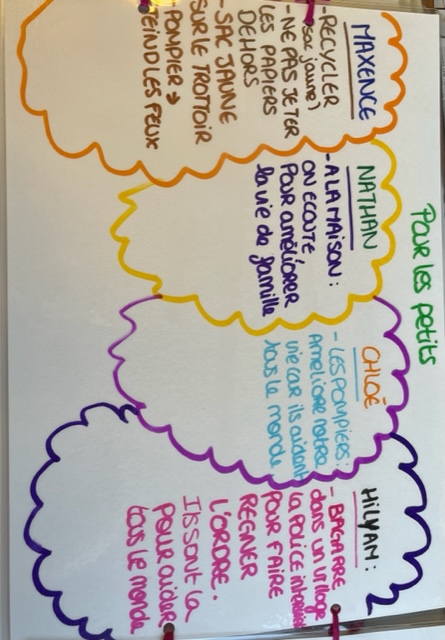 Pour les petits
MAXENCE
-RECYCLER
(sac jaune)
-NE PAS JETER
LES PAPIERS
DEHORS
-SAC JAUNE
SUR LE TROTTOIR
-POMPIER →
TEIND LES FEUX
NATHAN
-A LA MAISON :
ON ECOUTE
POUR améliorer
la vie de famille
CHLOÉ
-LES POMPIERS :
Améliore notre
vie car ils aident
tous le monde
HILYAN :
-BAGARRE
dans un village
la POLICE intervient
POUR FAIRE
REGNER
L'ORDRE.
Ils sont là
Pour aider
tous le monde